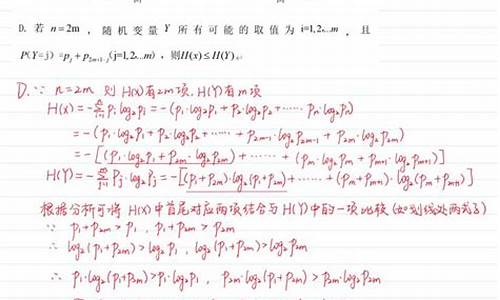 D. 若 n=2m ， 随 机 变 量 Y 所 有 可 能 的 取 值 为 i=1,2,..m ， 且
P(Y=j) =p_j+p_{2m+1-j}(j=1,2,..m) ，则H(x)≤H(Y).
D. ∵ n=2m 则 H(x)有2m项, H(Y)有m项
H(x)=-Σp_i log₂p_i=-(p₁·log₂p₁+p₂·log₂p₂+……p_n·log₂p_n)
=-(p₁·log₂p₁+p₂·log₂p₂+……+p_{2m-1}·log₂p_{2m-1}+p_{2m}·log₂p_{2m})
=-[(p₁·log₂p₁+p_{2m}·log₂p_{2m})+……+(p_m·log₂p_m+p_{m+1}·log₂p_{m+1})]
H(Y)=-Σp_j·log₂p_j=-[(p₁+p_{2m})·log₂(p₁+p_{2m})+……+(p_m+p_{m+1})·log₂(p_m+p_{m+1})]
根据分析可将 H(x)中首尾对应两项结合与H(Y)中的一项比较(如划线处两式)
∵ p₁+p_{2m}>p₁ , p₁+p_{2m}>p_{2m}
∴ log₂(p₁+p_{2m})>log₂p₁ , log₂(p₁+p_{2m})>log₂p_{2m}
∴ p₁·log₂(p₁+p_{2m})>p₁·log₂p₁ , p_{2m}·log₂(p₁+p_{2m})>p_{2m}·log₂p_{2m}